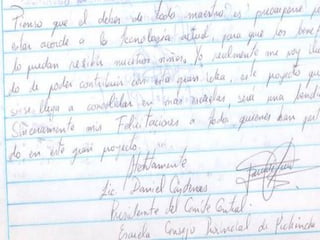 Pienso que el deber de todo maestro es preocuparse p
estar acorde a la tecnología actual, para que los bene
lo puedan recibir nuestros niños, Yo realmente me voy
do de poder contribuir con esta gran idea, este proyecto que
se llega a consolidar en más escuelas, será una bendi
Sinceramente mis Felicitaciones a todos quienes han part
do en este gran proyecto.
Atentamente
Lic. Daniel Cárdenas
Presidente del Comite Central
Escuela Consejo Provincial de Pichincha